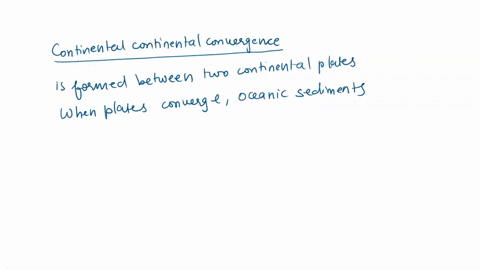 Continental continental convergence
is formed between two continental plates
When plates converge, oceanic sediments